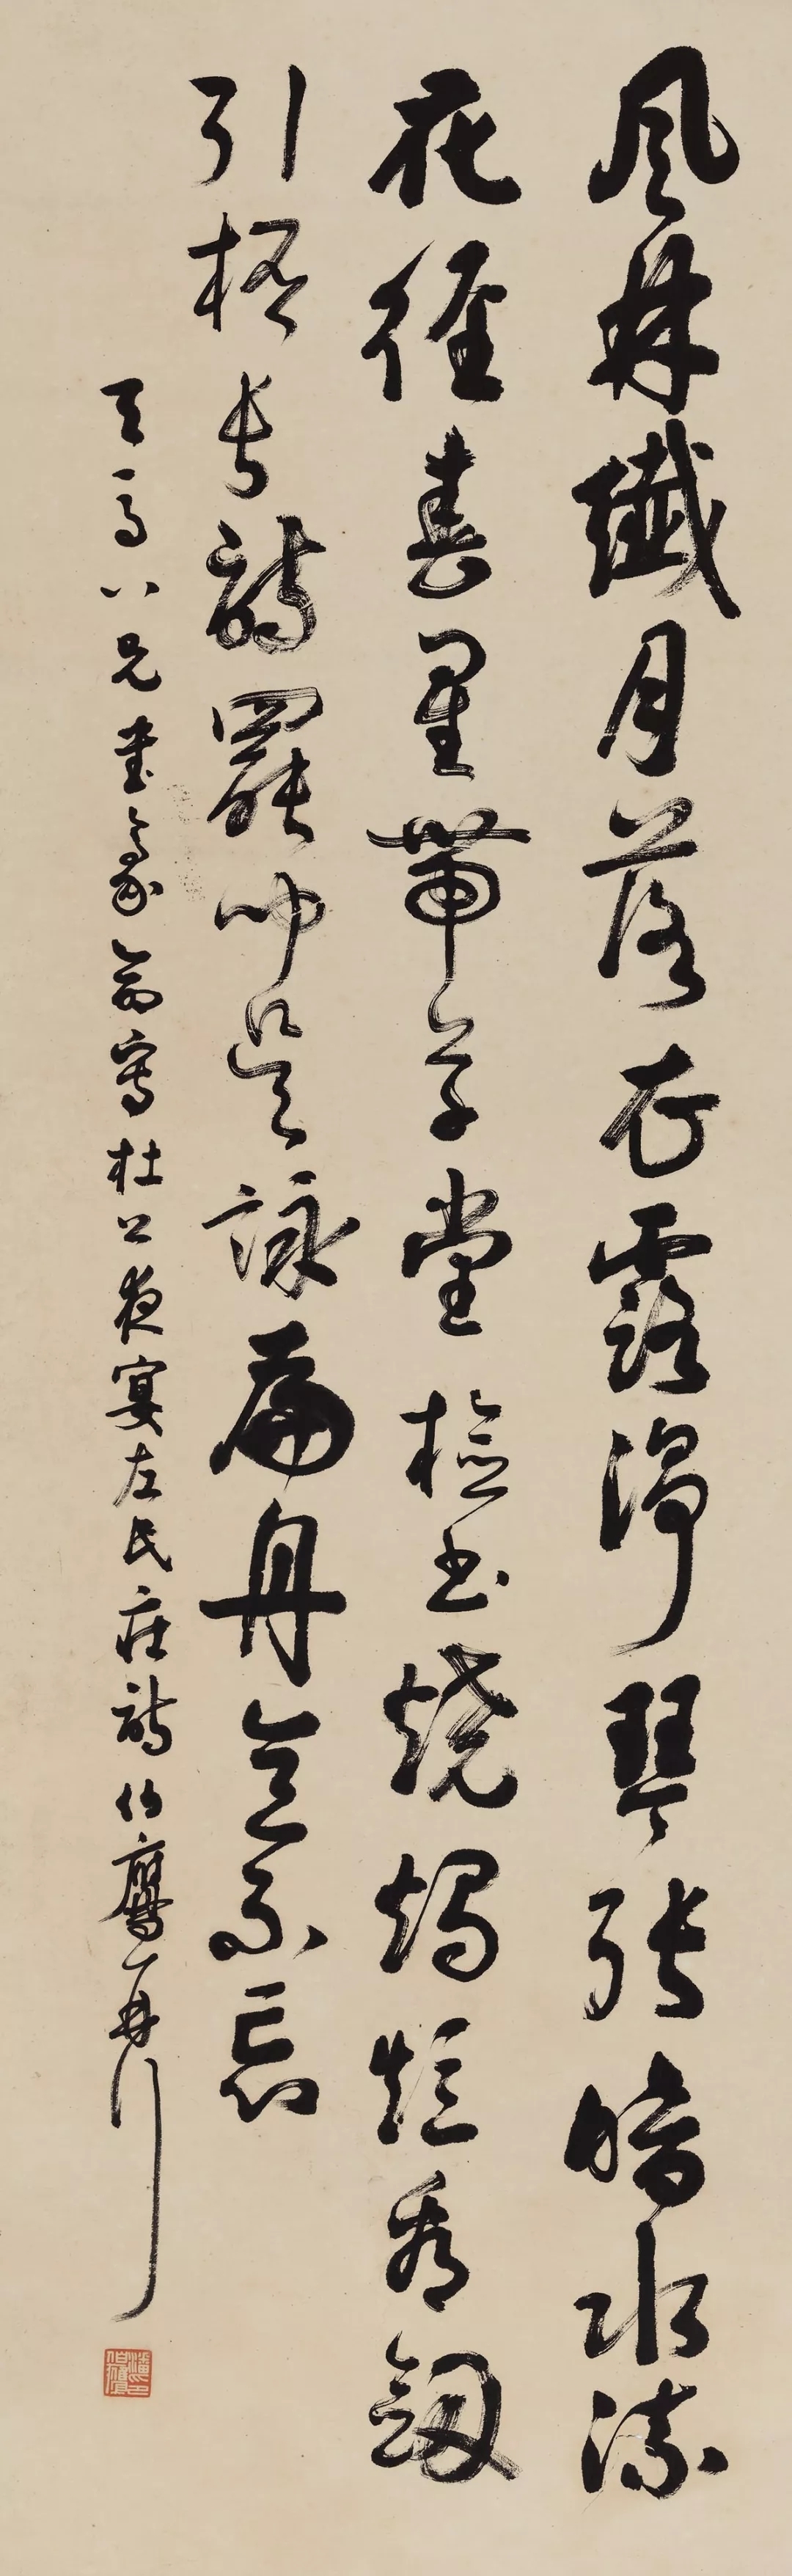 風林纖月落衣露淨琴張暗水流
花徑春星帶草堂檢書燒燭短看劍
引桮長詩罷聞吳詠扁舟意不忘
兄 翁寫杜公夜宴左氏莊詩伯鷹再行
潘印伯鷹